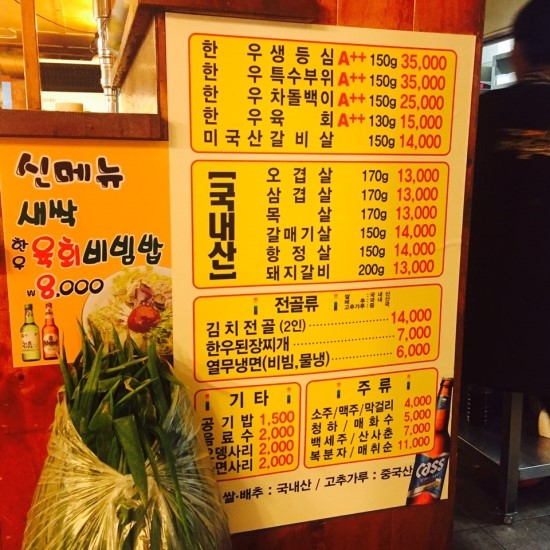 신메뉴
새싹
한우 육회비빔밥
₩8,000
한 우 생 등 심 A++ 150g 35,000
한 우 특수부위 A++ 150g 35,000
한 우 차돌백이 A++ 150g 25,000
한 우 육 회 A++ 130g 15,000
미국산갈비살 150g 14,000
[국내산]
오 겹 살 170g 13,000
삼 겹 살 170g 13,000
목 살 170g 13,000
갈매기살 150g 14,000
항 정 살 150g 14,000
돼지갈비 200g 13,000
전골류
김치전골 (2인) 14,000
한우된장찌개 7,000
열무냉면(비빔,물냉) 6,000
기 타
공 기 밥 1,500
음 료 수 2,000
오뎅사리 2,000
면사리 2,000
주 류
소주/맥주/막걸리 4,000
청 하 / 매 화 수 5,000
백세주/산사춘 7,000
복분자/매취순 11,000
Cass
쌀·배추 : 국내산 / 고추가루 : 중국산